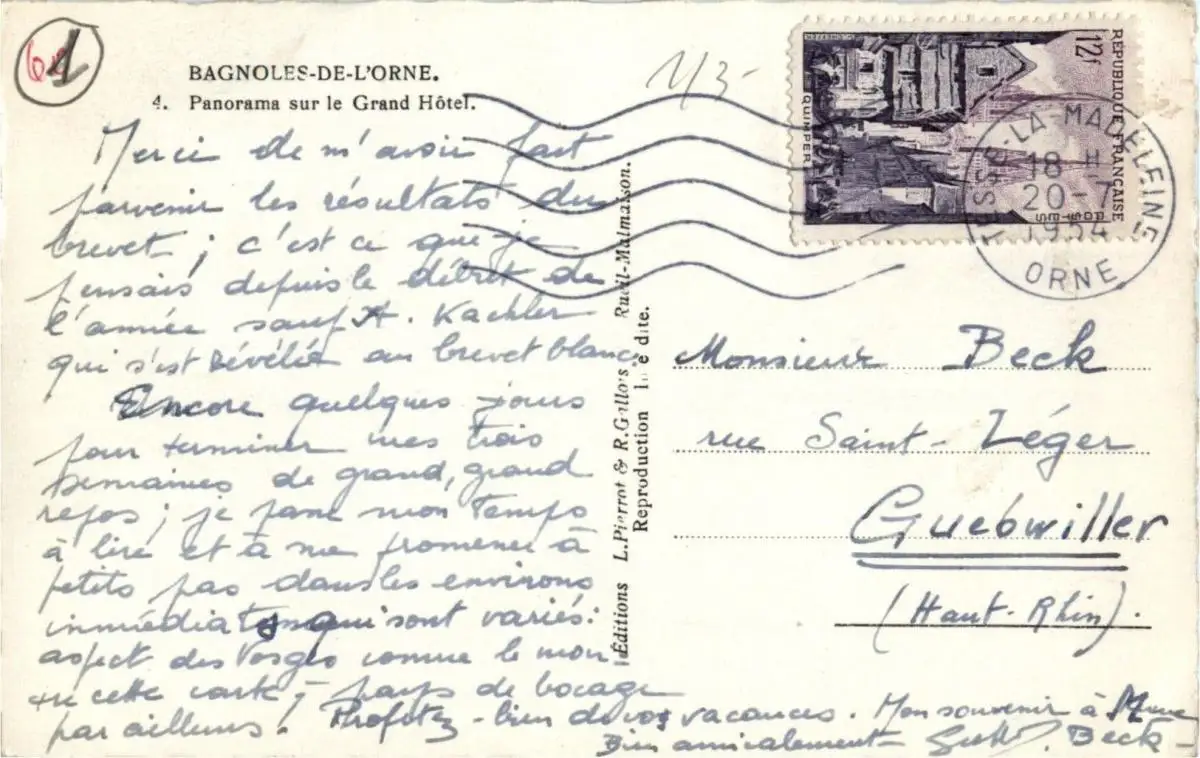 BAGNOLES-DE-L'ORNE.
4. Panorama sur le Grand Hôtel.
1/3-
Merci de m'avoir fait
parvenir les résultats du
brevet ; c'est ce que je
pensais depuis le début de
l'année sauf A. Kachler
qui s'est révélée au brevet blanc.
Encore quelques jours
pour terminer mes trois
semaines de grand, grand
repos ; je passe mon temps
à lire et à me promener à
petits pas dans les environs
immédiats qui sont variés :
aspect des Vosges comme le mon
tre cette carte, pays de bocage
par ailleurs. Profitez-bien de vos vacances. Mon souvenir à Mme
Bien amicalement Beck
Éditions L. Pierrot & R. Gillois Rueil-Malmaison.
Reproduction interdite.
RÉPUBLIQUE FRANÇAISE
12f
POSTES
QUIMPER
TESSÉ-LA-MADELEINE
18 H
20-7
1954
ORNE
Monsieur Beck
rue Saint-Léger
Guebwiller
(Haut-Rhin).